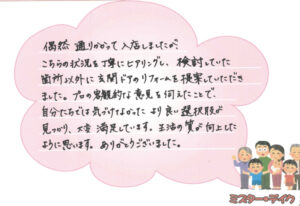 偶然 通りかかって入店しましたが、
こちらの状況を丁寧にヒアリングし、検討していた
箇所以外に玄関ドアのリフォームを提案していただき
ました。プロの客観的な意見を伺えたことで、
自分たちでは気づけなかった より良い選択肢が
見つかり、大変 満足しています。生活の質が向上した
ように思います。ありがとうございました。
ミスター・デイク